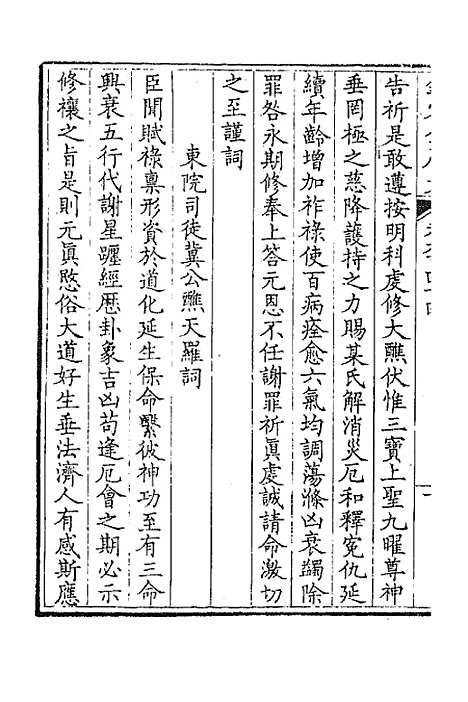 告祈是敢遵按明科虔修大醮伏惟三寶上聖九曜尊神
垂罔極之慈降護持之力賜某氏解消災厄和釋寃仇延
續年齡增加祚祿使百病痊愈六氣均調蕩滌凶衰蠲除
罪咎永期修奉上答元恩不任謝罪祈眞虔誠請命激切
之至謹詞
東院司徒冀公醮天羅詞
臣聞賦祿稟形資於道化延生保命繫彼神功至有三命
興衰五行代謝星躔經歴卦象吉凶苟逢厄會之期必示
修禳之旨是則元眞愍俗大道好生垂法濟人有感斯應